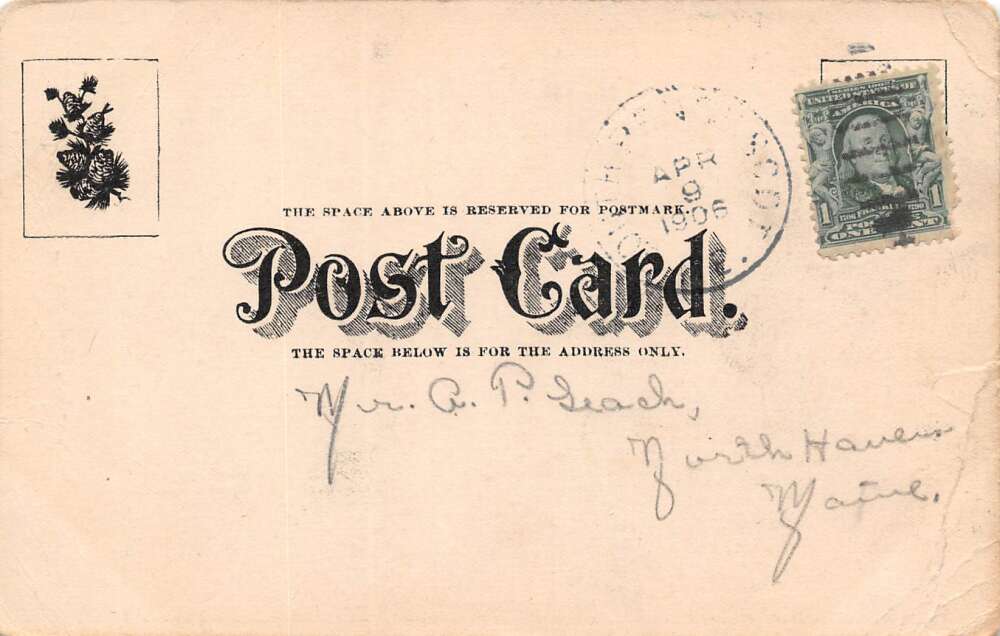 SERIES 1902
UNITED STATES OF
AMERICA
1706 FRANKLIN 1790
1 POSTAGE 1
ONE CENT
APR
9
1906
THE SPACE ABOVE IS RESERVED FOR POSTMARK.
Post Card.
THE SPACE BELOW IS FOR THE ADDRESS ONLY.
Mr. A. P. Geach,
North Haven
Maine.